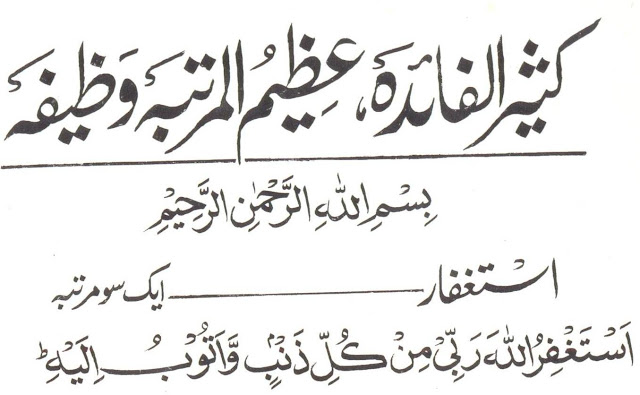 کثیر الفائدہ، عظیمُ المرتبہ وَظیفہ
بِسْمِ اللّٰہِ الرَّحْمٰنِ الرَّحِیْمِ
استغفار ——— ایک سو مرتبہ
اَسْتَغْفِرُ اللّٰہَ رَبِّیْ مِنْ کُلِّ ذَنْبٍ وَّاَتُوْبُ اِلَیْہِ ؕ